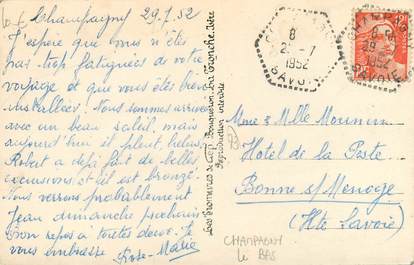 Champagny 29.7.52
J'espère que vous n'êtes
pas trop fatiguées de votre
voyage et que vous êtes bien
installées. Nous sommes arrivés
avec un beau soleil, mais
aujourd'hui il pleut, hélas
Robert a déjà fait de belles
excursions et il est bronzé.
Nous verrons probablement
Jean dimanche prochain
Bon repos à toutes deux. Je
vous embrasse. Rose-Marie
Reproduction interdite
8
29-7
1952
SAVOIE
CHAMPAGNY
8
29
1952
SAVOIE
Mme & Mlle Mounin
Hotel de la Poste
Bonne s/ Menoge
(Hte Savoie)
CHAMPAGNY
le BAS